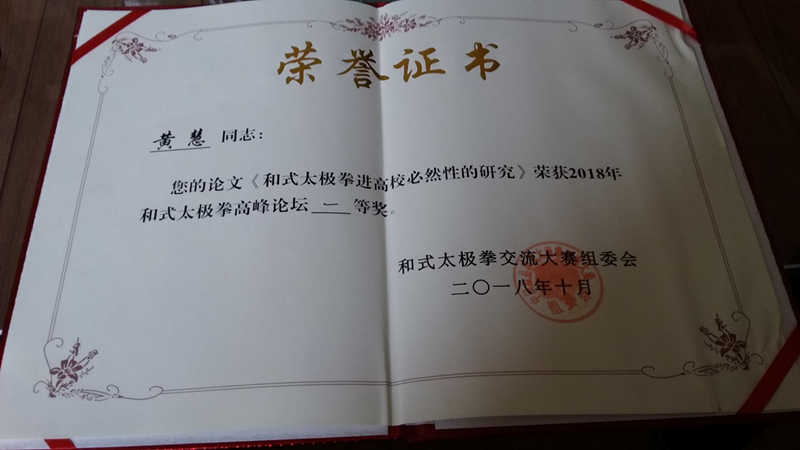 荣誉证书
黄慧 同志：
您的论文《和式太极拳进高校必然性的研究》荣获2018年
和式太极拳高峰论坛 一 等奖。
和式太极拳交流大赛组委会
二〇一八年十月